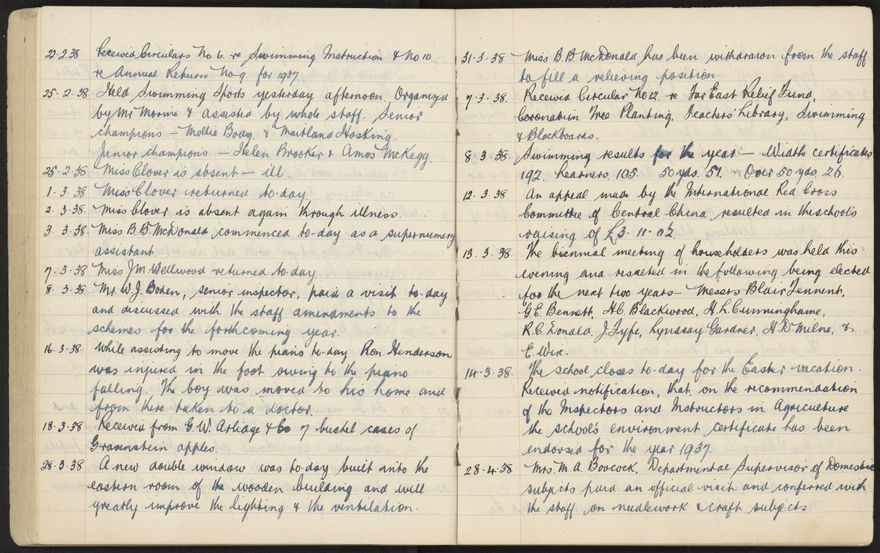 22.2.38 Received Circulars No 6. re Swimming Instruction & No 10.
re Annual Return No 9 for 1937
25.2.38 Held Swimming Sports yesterday afternoon. Organized
by Mr Morine & assisted by whole staff. Senior
champions — Mollie Boag & Maitland Hosking.
Junior champions — Helen Brooker & Amos McKegg.
25.2.38 Miss Clover is absent — ill.
1.3.38 Miss Clover returned to-day
2.3.38 Miss Clover is absent again through illness.
3.3.38 Miss B.B. McDonald commenced to-day as a supernumery
assistant.
7.3.38 Miss J.M. Wellwood returned to-day
8.3.38 Mr. W.J. Boden, senior inspector, paid a visit to-day
and discussed with the staff amendments to the
schemes for the forthcoming year.
16.3.38 While assisting to move the piano to-day Ron Henderson
was injured in the foot owing to the piano
falling. The boy was moved to his home and
from there taken to a doctor.
18.3.38 Received from G.W. & Co 7 bushel cases of
Gravenstein apples.
28.3.38 A new double window was to-day built into the
eastern room of the wooden building and will
greatly improve the lighting & the ventilation.
31.3.38 Miss B.B. McDonald has been withdrawn from the staff
to fill a relieving position
7.3.38. Received Circular No 12. re Far East Relief Fund,
Coronation Tree Planting, Teachers' Library, Swimming
& Blackboards.
8.3.38 Swimming results for the year — Width certificates
192. Learners, 105. 50 yds. 51. Over 50 yds. 26.
12.3.38 An appeal made by the International Red Cross
Committee of Central China resulted in the school's
raising of £3-11-0½
13.3.38. The biennial meeting of householders was held this
evening and resulted in the following being elected
for the next two years — Messrs Blair Tennent,
G.E. Bennett, H.C Blackwood, H.L. Cunninghame,
R.C. Donald, J. Fyfe, Lyndsay Gardner, H.D Milne, &
E. Wix.
14.3.38. The school closes to-day for the Easter vacation.
Received notification, that, on the recommendation
of the Inspectors and Instructors in Agriculture
the school's environment certificate has been
endorsed for the year 1937.
28.4.38 Mrs. M.A Boocock, Departmental Supervisor of Domestic
subjects paid an official visit and conferred with
the staff on needlework & craft subjects